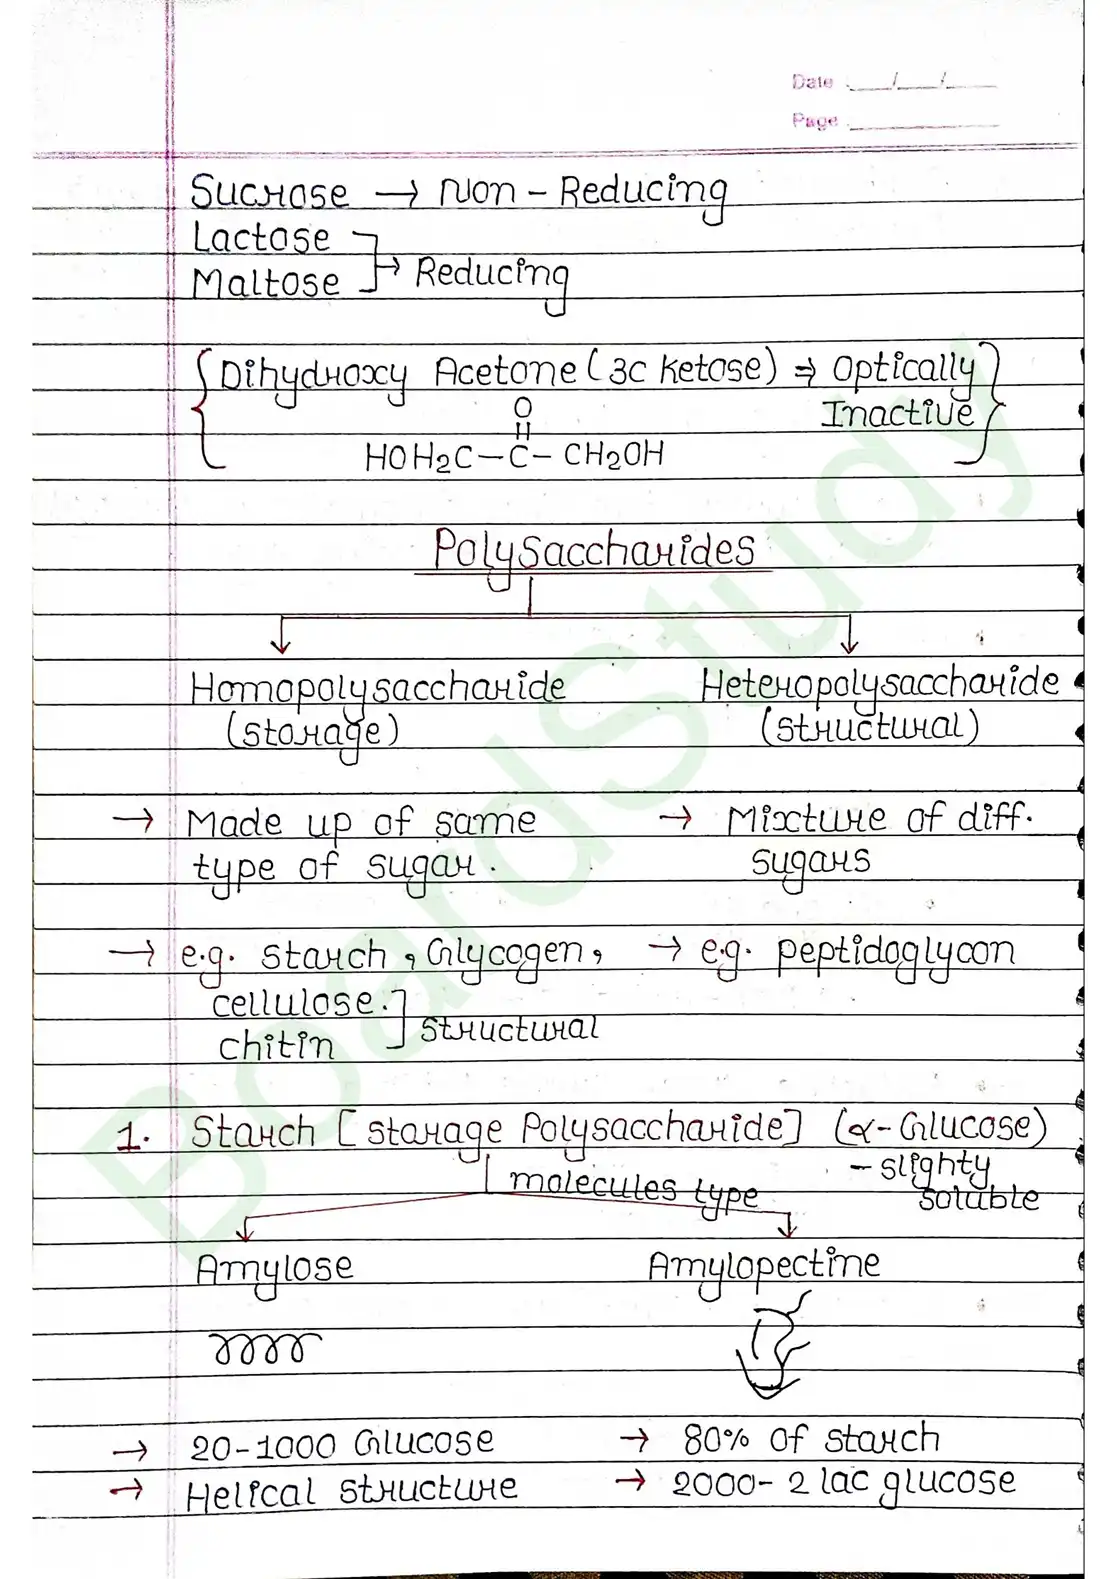 Date .___/___/___
Page .___________
Sucrose → Non - Reducing
Lactose
Maltose → Reducing
Dihydroxy Acetone (3C Ketose) ⇒ Optically
Inactive
O
||
HOH2C — C — CH2OH
Polysaccharides
Homopolysaccharide
(storage)
Heteropolysaccharide
(structural)
→ Made up of same
type of sugar.
→ Mixture of diff.
sugars
→ e.g. starch, Glycogen,
cellulose.
chitin
structural
→ e.g. peptidoglycon
1. Starch [storage Polysaccharide] (α-Glucose)
- slighty
soluble
molecules type
Amylose
Amylopectine
→ 20-1000 Glucose
→ Helical structure
→ 80% of starch
→ 2000- 2 lac glucose
BoardStudy